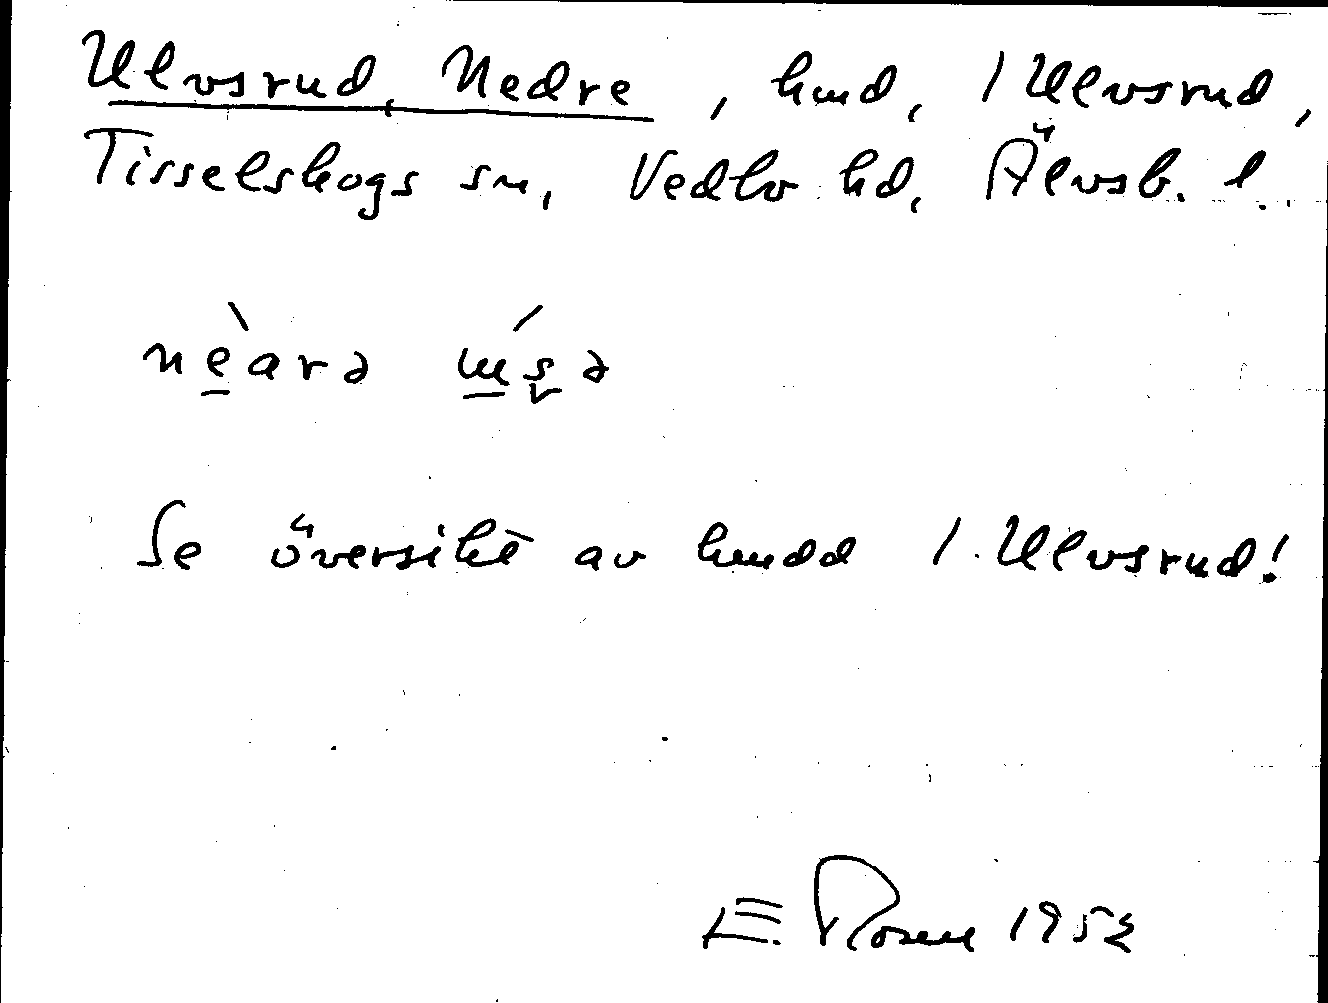 Ulvsrud, Nedre, hmd, 1 Ulvsrud,
Tisselskogs sn, Vedbo hd, Älvsb. l.
nèarə
Se översikt av hmdd 1. Ulvsrud!
E. Rosen 1952